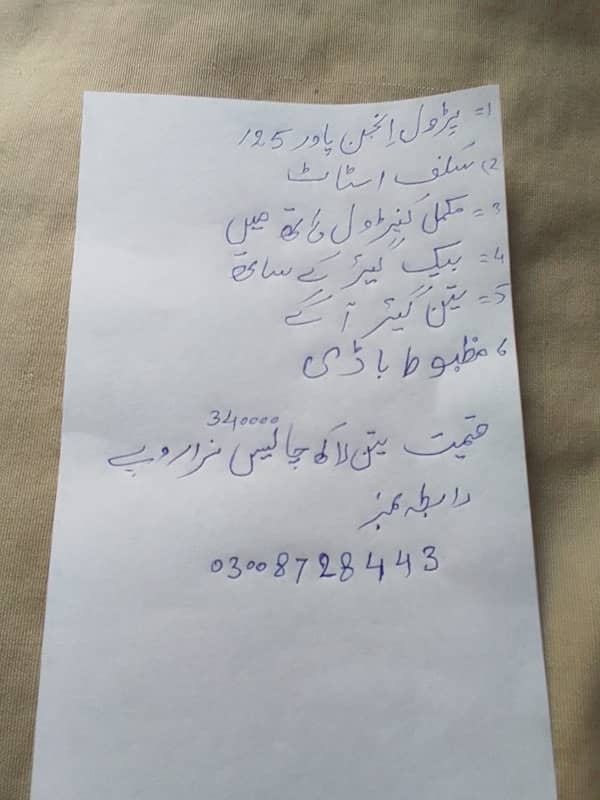 1= پڑول انجن پاور 125
2) سلف اسٹاٹ
3= مکمل کنپڑول ہاتھ میں
4= بیک گیئر کے ساتھ
5= تین گیئر آگے
6 مظبوط باڈی
340000
قمیت تین لاکھ چالیس ہزار روپے
رابطہ نمبر
03008728443